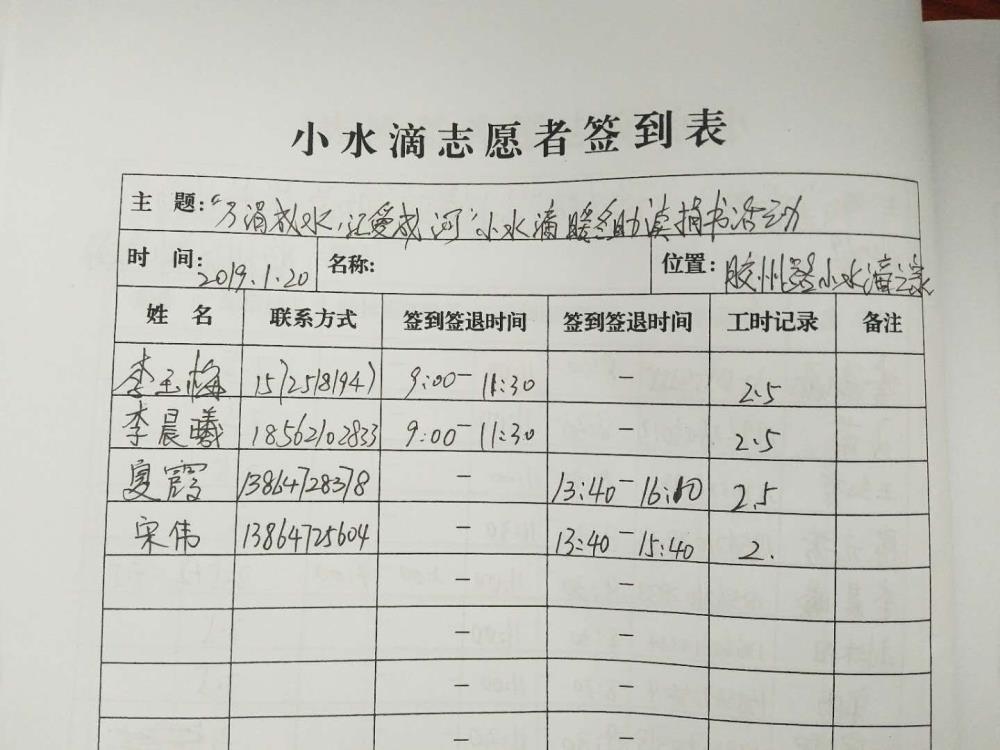 小水滴志愿者签到表
主 题：“万涓成水，让爱成河”小水滴暖冬助读捐书活动
时 间：2019.1.20 名称： 位置：胶州路小水滴之家
姓 名 联系方式 签到签退时间 签到签退时间 工时记录 备注
李玉梅 15725181947 9:00-11:30 - 2.5
李晨曦 18562102833 9:00-11:30 - 2.5
夏霞 13864728378 - 13:40-16:10 2.5
宋伟 13864725604 - 13:40-15:40 2.
- -
- -
- -
- -